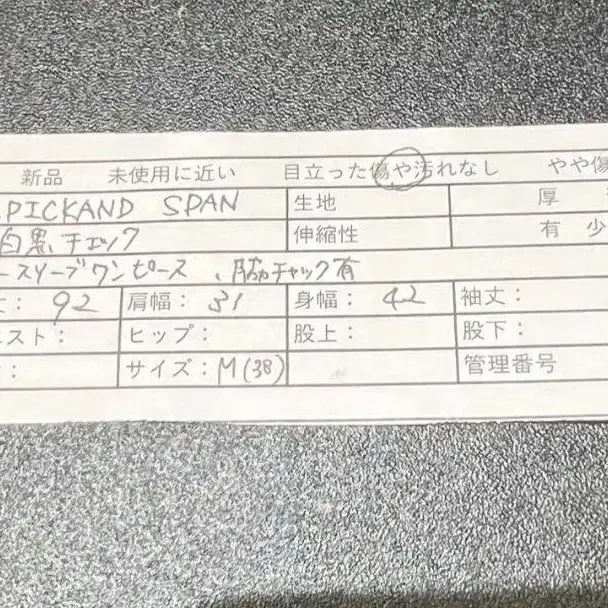 新品 未使用に近い 目立った傷や汚れなし やや傷
PICKAND SPAN 生地 厚
白黒チェック 伸縮性 有 少
ースリーブワンピース、脇チャック有
丈: 92 肩幅: 31 身幅: 42 袖丈:
エスト: ヒップ: 股上: 股下:
: サイズ: M(38) 管理番号